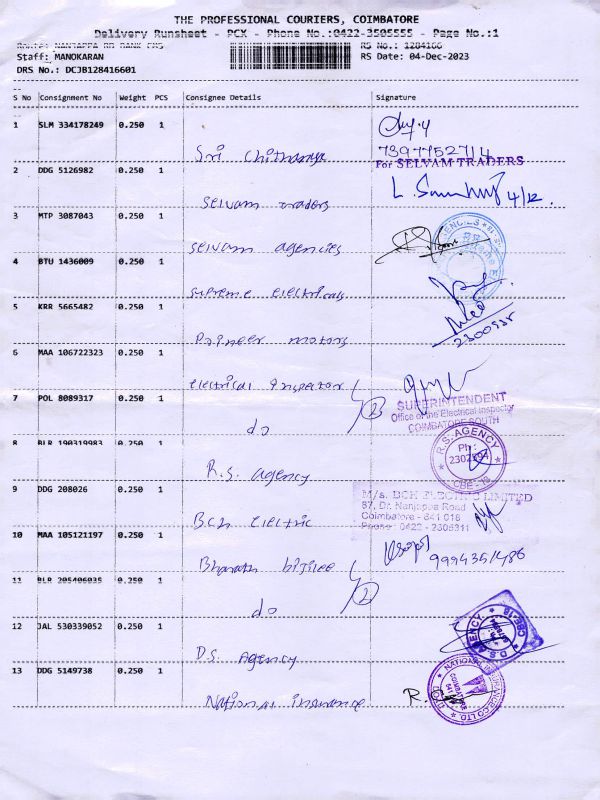 THE PROFESSIONAL COURIERS, COIMBATORE
Delivery Runsheet - PCX - Phone No.:0422-3505555 - Page No.:1
Staff: MANOKARAN
RS No.: 1284166
RS Date: 04-Dec-2023
DRS No.: DCJB128416601
S No Consignment No Weight PCS Consignee Details Signature
1 SLM 334178249 0.250 1
Sri Chithanya
7397752714
For SELVAM TRADERS
2 DDG 5126982 0.250 1
Selvam traders
4/12
3 MTP 3087043 0.250 1
Selvam agencies
4 BTU 1436009 0.250 1
Supreme Electricals
5 KRR 5665482 0.250 1
2300535
Poineer motors
6 MAA 106722323 0.250 1
Electrical Inspector
2
7 POL 8089317 0.250 1
SUPERINTENDENT
Office of the Electrical Inspector
COIMBATORE SOUTH
do
8 BLR 190319983 0.250 1
R.S. AGENCY
Ph :
2302994
CBE - 18
R.S. agency
9 DDG 208026 0.250 1
M/s. BCH ELECTRIC LIMITED
87, Dr. Nanjappa Road
Coimbatore - 641 018
Phone : 0422 - 2305311
BCH Electric
10 MAA 105121197 0.250 1
9994351486
Bharath bijlee
2
11 BLR 205406035 0.250 1
do
12 JAL 530339052 0.250 1
D.S. AGENCY
CBE-18
D.S. Agency
13 DDG 5149738 0.250 1
NATIONAL INSURANCE CO LTD.
National insurance